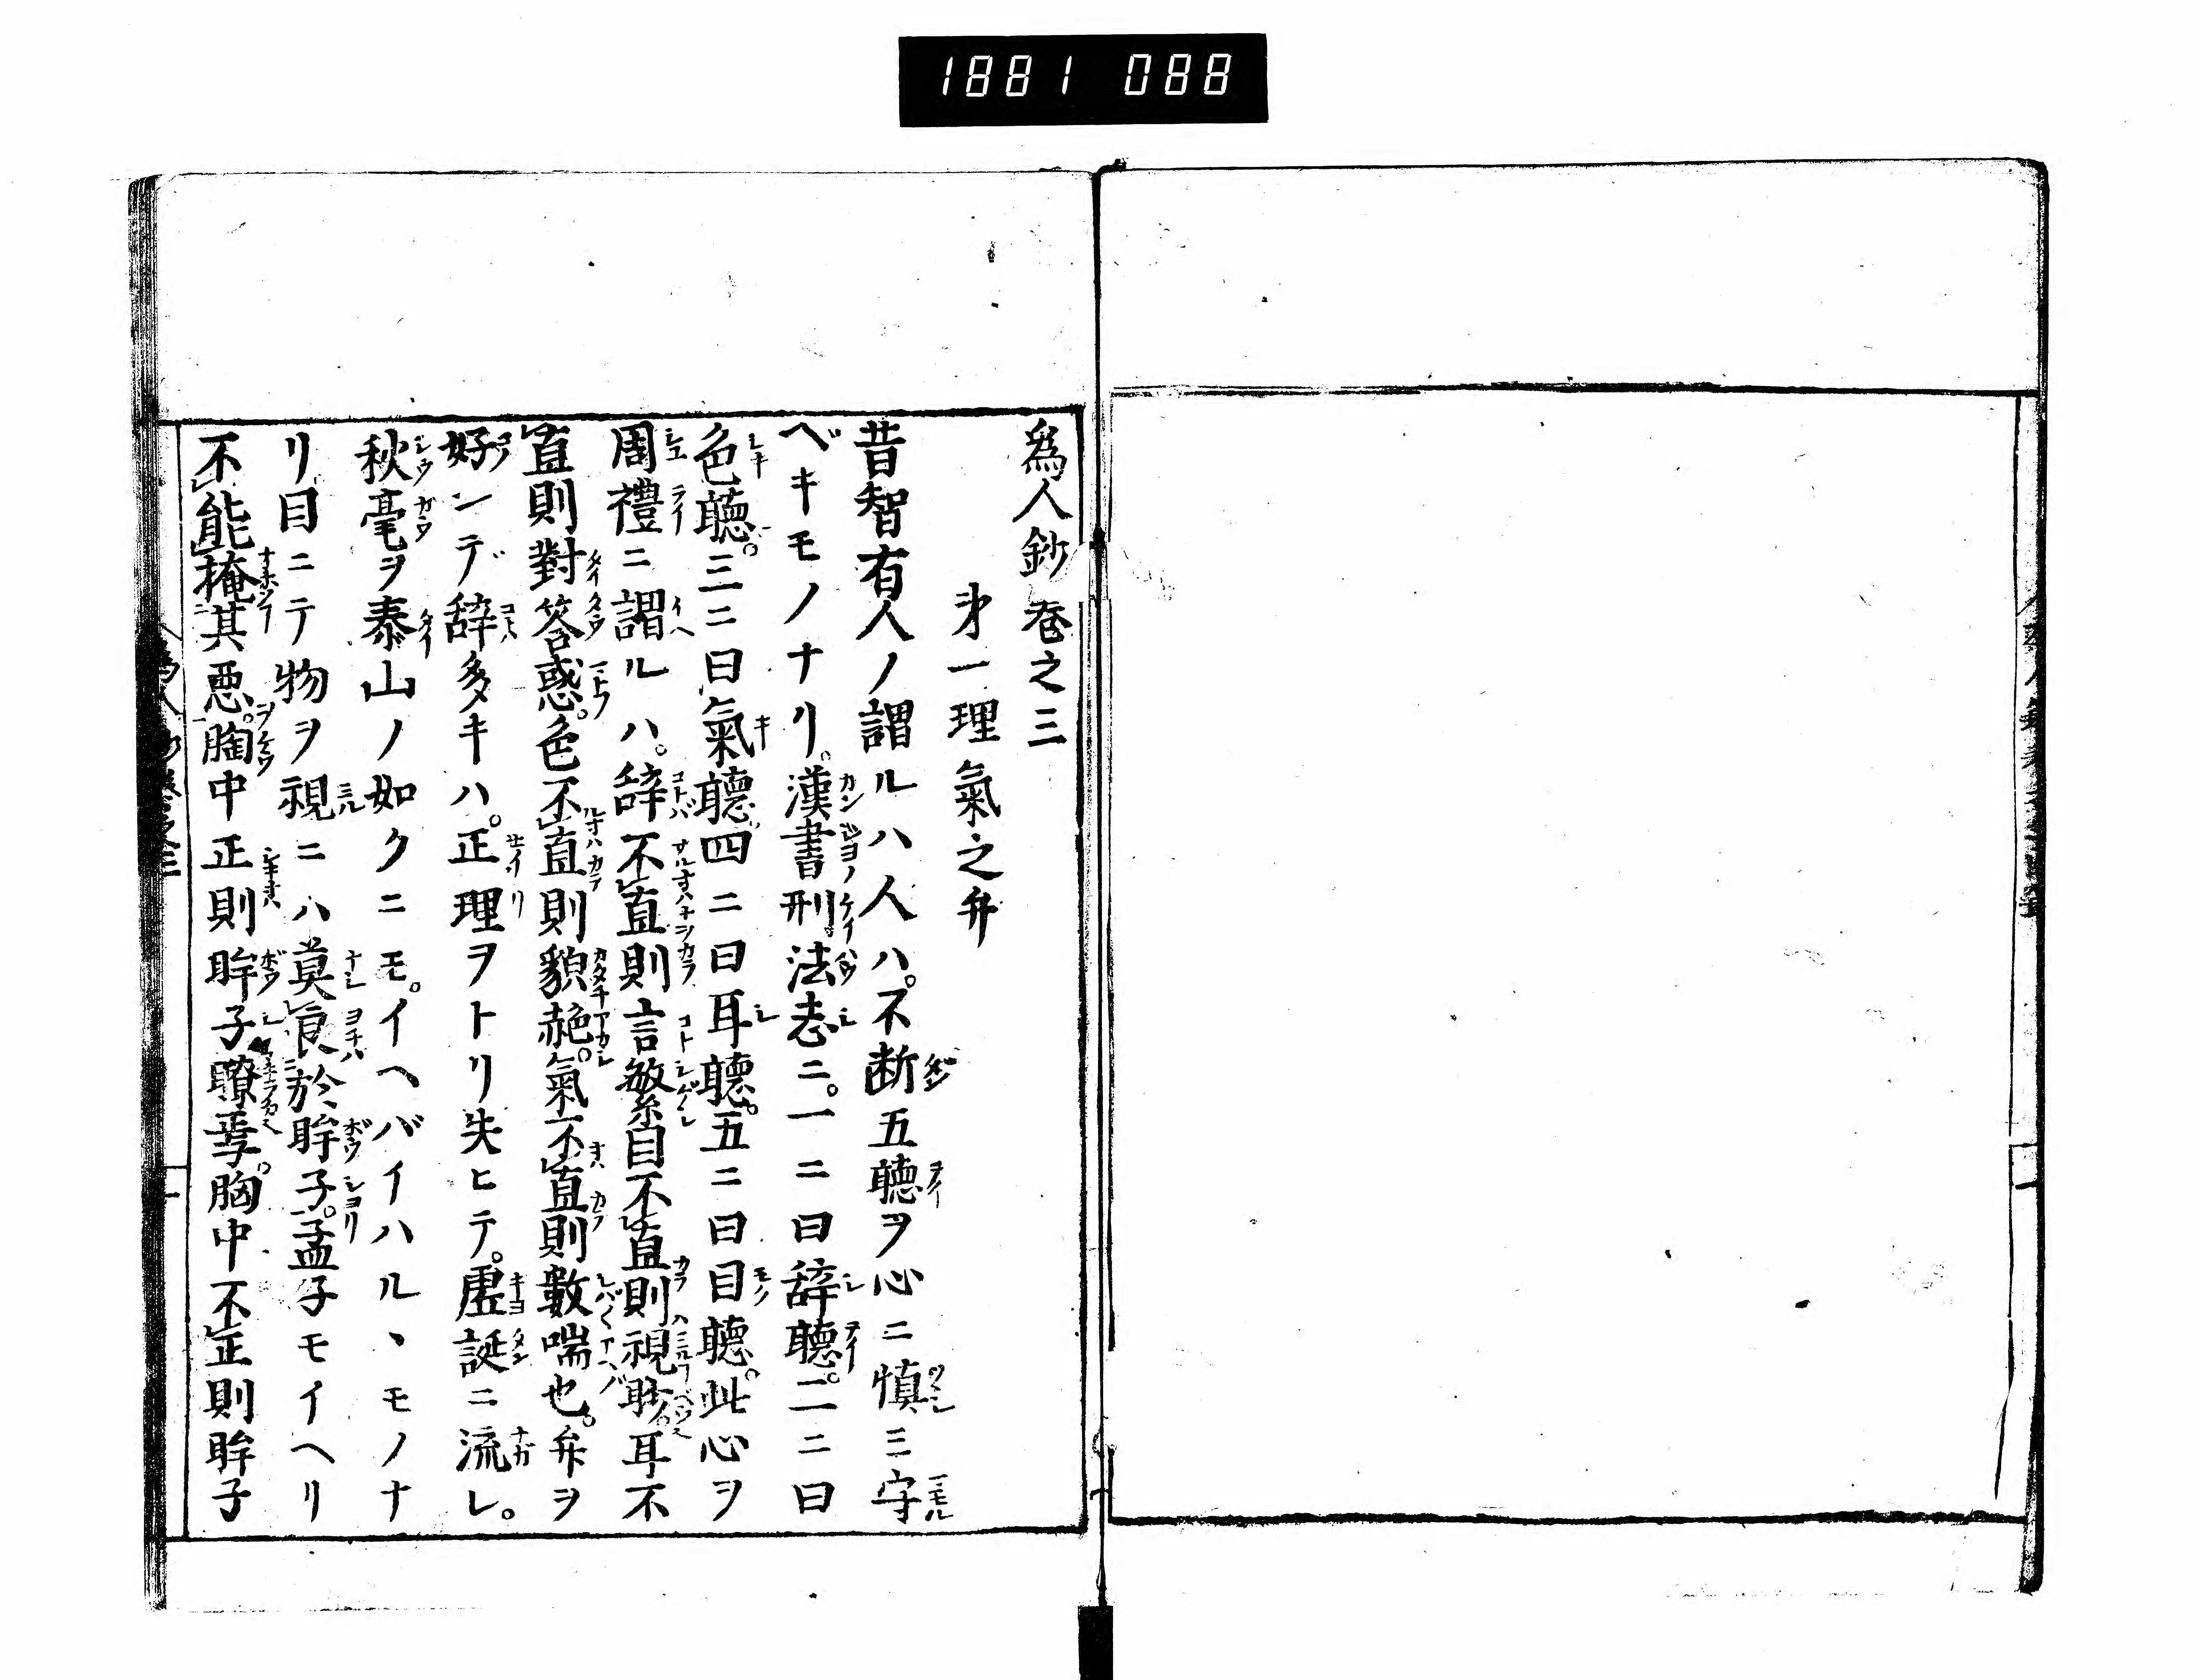 1881 088
爲人鈔巻之三
㐧一理氣之弁
昔智有人ノ謂ルハ人ハ。不断五聽ヲ心ニ慎ミ守
ベキモノナリ。漢書刑法志ニ。一ニ曰辞聽。二ニ曰
色聽。三ニ曰氣聽四ニ曰耳聽。五ニ曰目聽。此心ヲ
周禮ニ謂ルハ。辞不直則言繁目不直則視眊。耳不
直則對答惑。色不直則貌赩。氣不直則數喘也。弁ヲ
好ンデ辞多キハ。正理ヲトリ失ヒテ。虚誕ニ流レ。
秋毫ヲ泰山ノ如クニモ。イヘバイハルヽモノナ
リ目ニテ物ヲ視ニハ莫良於眸子。孟子モイヘリ
不能掩其悪。胸中正則眸子瞭焉。胸中不正則眸子